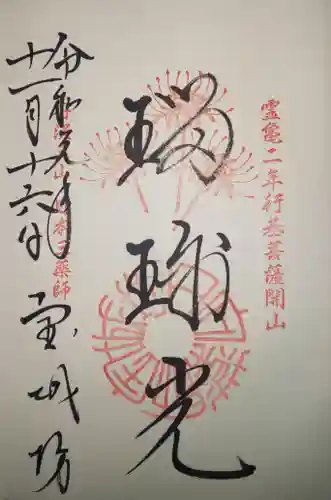 霊亀二年行基菩薩開山
瑠璃光
薬師
令和元年
十一月十六日
宝城坊